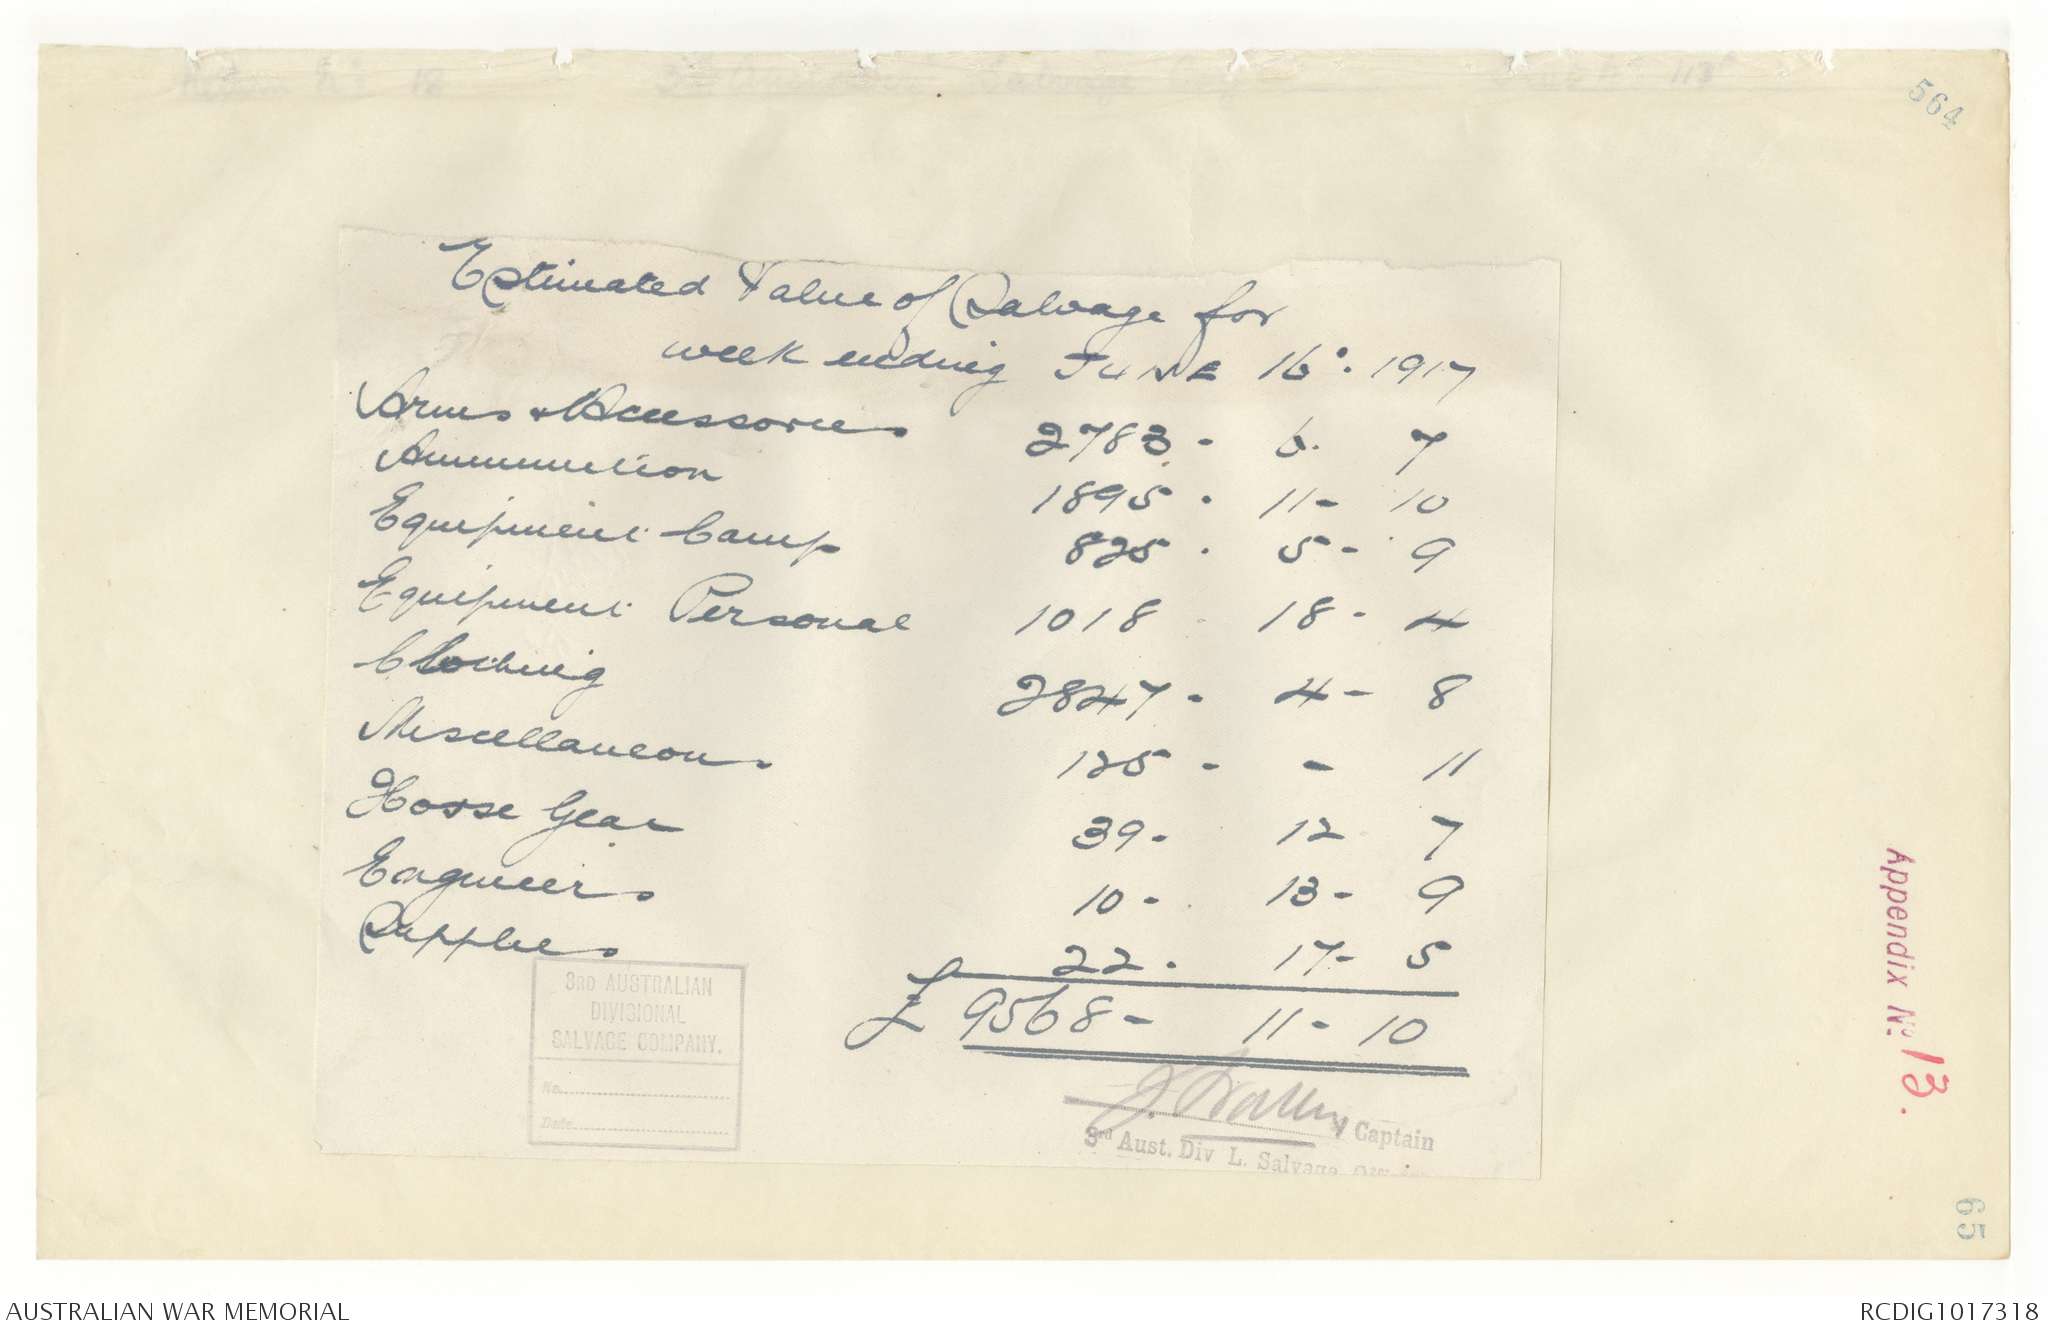 564
Estimated Value of Salvage for
week ending JUNE 16. 1917
Arms & Accessories 2783 - 6. 7
Ammunition 1895 . 11 - 10
Equipment Camp 825 . 5 - 9
Equipment Personal 1018 18 - 4
Clothing 2847 - 4 - 8
Miscellaneous 125 - - 11
Horse Gear 39 - 12 7
Engineers 10 - 13 - 9
Supplies 22 . 17 - 5
£ 9568 - 11 - 10
3RD AUSTRALIAN
DIVISIONAL
SALVAGE COMPANY.
No.
Date
Captain
3rd Aust. Div L. Salvage
Appendix No. 13.
65
AUSTRALIAN WAR MEMORIAL
RCDIG1017318